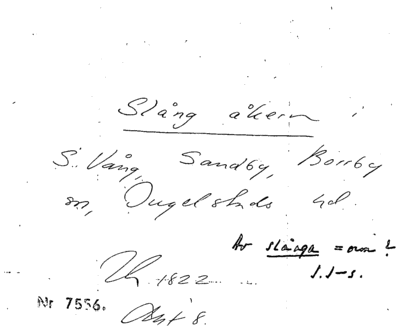 Slång åkern i
S. Vång, Sandby, Borrby
sn, Ingelstads hd.
Av slånga = orm?
J.J-s.
1822
Nr 7556. Akt 8.